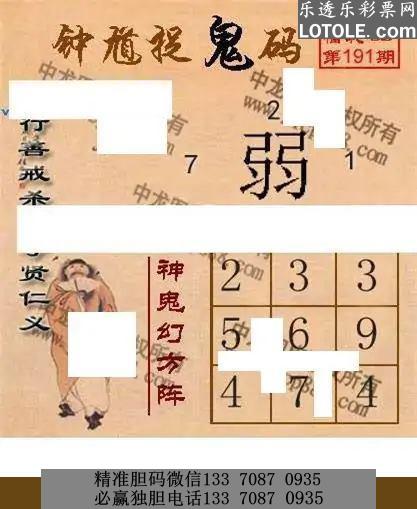 乐透乐彩票网
LOTOLE.COM
钟馗捉鬼码
第191期
2
7 弱 1
行善戒杀
贤仁义
神鬼幻方阵
2 3 3
5 6 9
4 7 4
精准胆码微信133 7087 0935
必赢独胆电话133 7087 0935